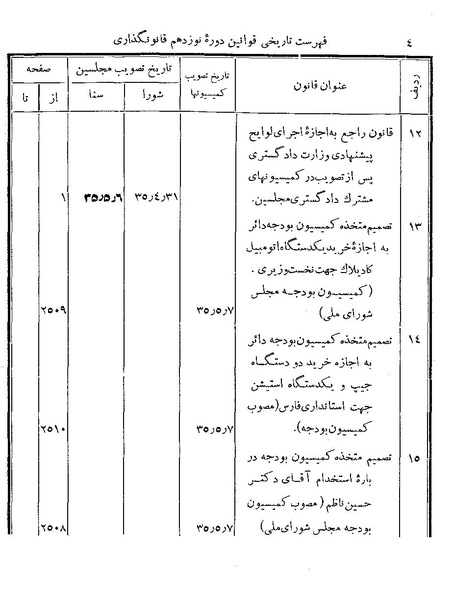 ٤
فهرست تاریخی قوانین دورهٔ نوزدهم قانونگذاری
ردیف
عنوان قانون
تاریخ تصویب کمیسیونها
تاریخ تصویب مجلسین
شورا
سنا
صفحه
از
تا
۱۲
قانون راجع به اجازهٔ اجرای لوایح
پیشنهادی وزارت دادگستری
پس از تصویب در کمیسیونهای
مشترك دادگستری مجلسین.
۳۵٫٤٫۳۱
۳۵٫۵٫۶
۱
۱۳
تصمیم متخذه کمیسیون بودجه دائر
به اجازهٔ خرید یکدستگاه اتومبیل
کادیلاك جهت نخست وزیری.
(کمیسیون بودجه مجلس
شورای ملی)
۳۵٫۵٫۷
۲۵۰۹
۱٤
تصمیم متخذه کمیسیون بودجه دائر
به اجازه خرید دو دستگاه
جیپ و یکدستگاه استیشن
جهت استانداری فارس (مصوب
کمیسیون بودجه).
۳۵٫۵٫۷
۲۵۱۰
۱۵
تصمیم متخذه کمیسیون بودجه در
بارهٔ استخدام آقای دکتر
حسین ناظم (مصوب کمیسیون
بودجه مجلس شورای ملی)
۳۵٫۵٫۷
۲۵۰۸